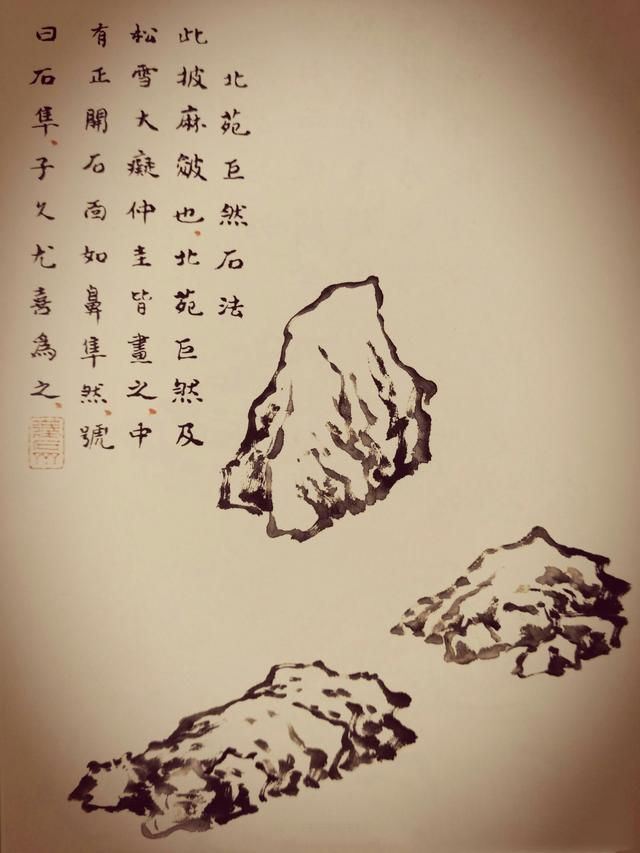 北苑巨然石法
此披麻皴也北苑巨然及
松雪大癡仲圭皆畫之中
有正開石面如鼻隼然號
曰石隼子久尤喜為之